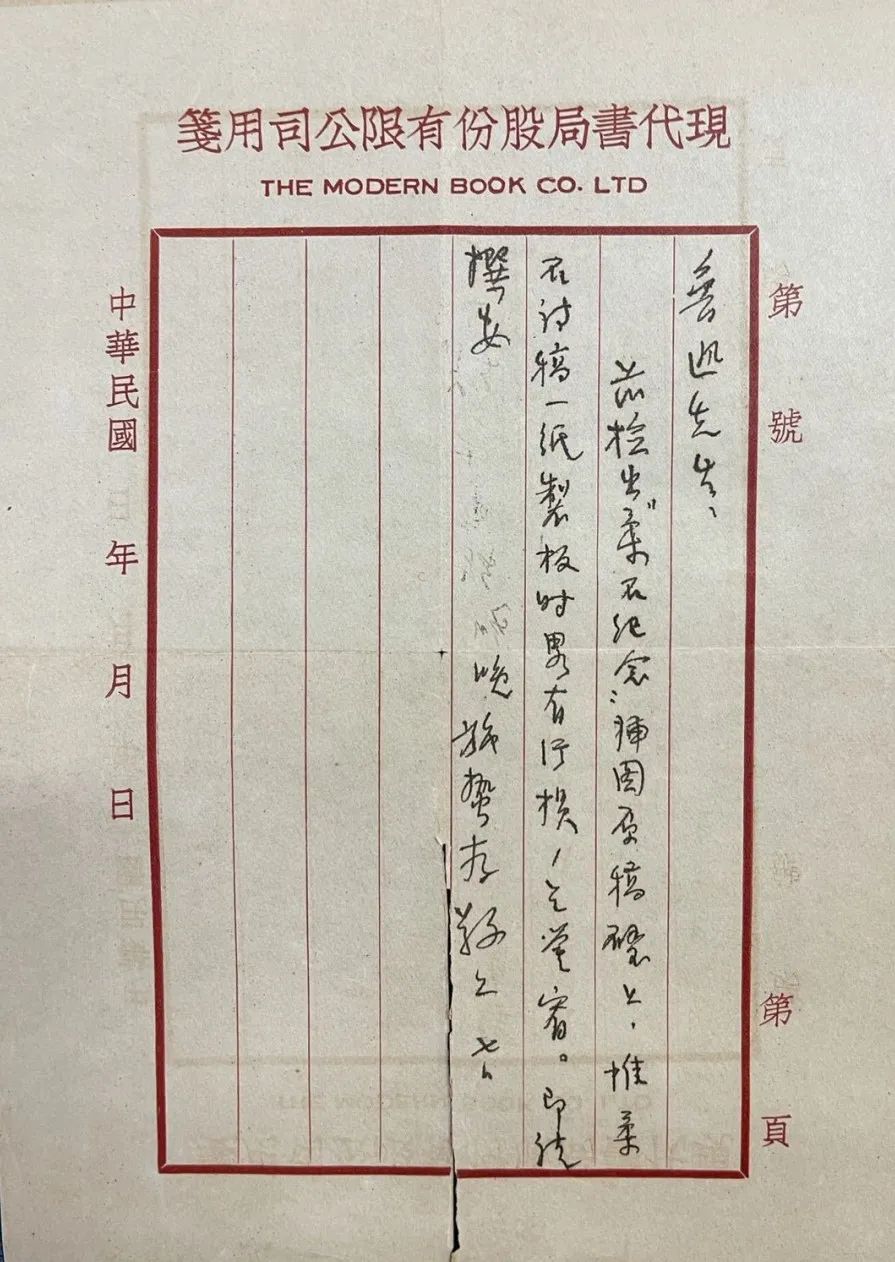 現代書局股份有限公司用箋
THE MODERN BOOK CO. LTD
第 號
第 頁
魯迅先生、
茲檢出“柔石纪念”插图原稿璧上，惟柔
石诗稿一纸製板时畧有污损，乞鉴宥。即
撰安
晚施蛰存敬上 七日
中華民國 年 月 日